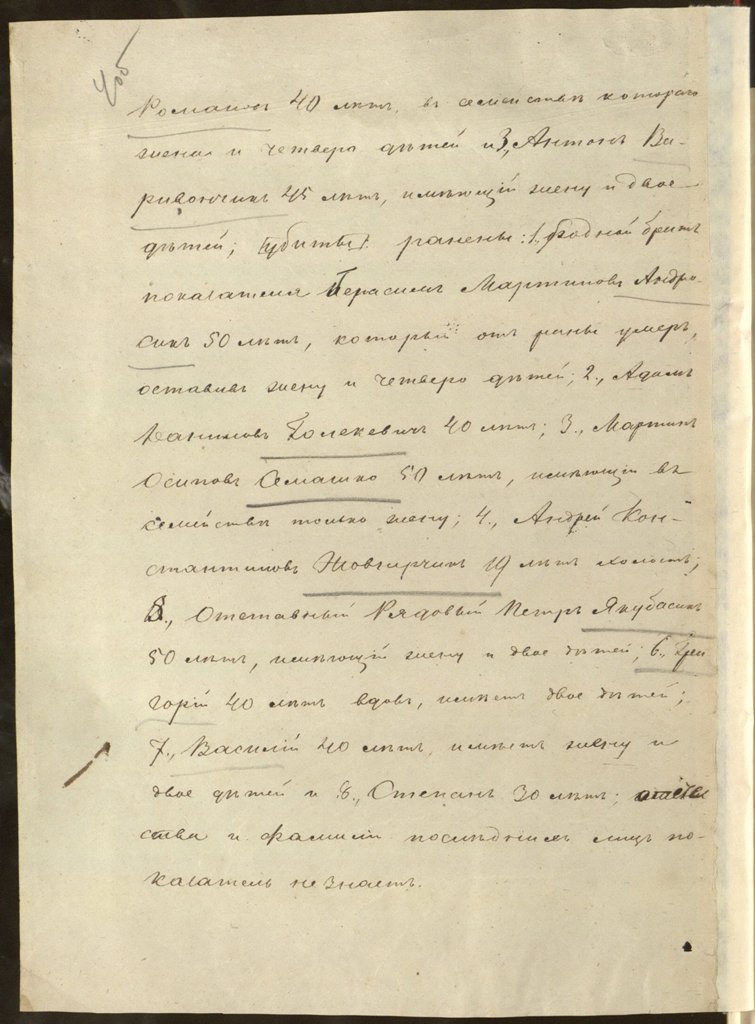 Романовъ 40 лѣтъ, въ семействѣ котораго
жена и четверо дѣтей и 3., Антонъ Ва-
ривончикъ 45 лѣтъ, имѣющій жену и двое
дѣтей; убиты ранены: 1., Родной братъ
показателя Герасимъ Мартиновъ Андро-
сикъ 50 лѣтъ, который отъ раны умеръ,
оставивъ жену и четверо дѣтей; 2., Адамъ
Даниловъ Болекевичъ 40 лѣтъ; 3., Мартинъ
Осиповъ Семашко 50 лѣтъ, имѣющій въ
семействѣ только жену; 4., Андрей Кон-
стантиновъ 19 лѣтъ холостъ;
5., Отставный Рядовый Петръ Якубасикъ
50 лѣтъ, имѣющій жену и двое дѣтей; 6., Гри
горій 40 лѣтъ вдовъ, имѣетъ двое дѣтей;
7., Василій 40 лѣтъ, имѣетъ жену и
двое дѣтей и 8., Степанъ 30 лѣтъ; отече
ства и фамиліи послѣднихъ лицъ по-
казатель не знаетъ.